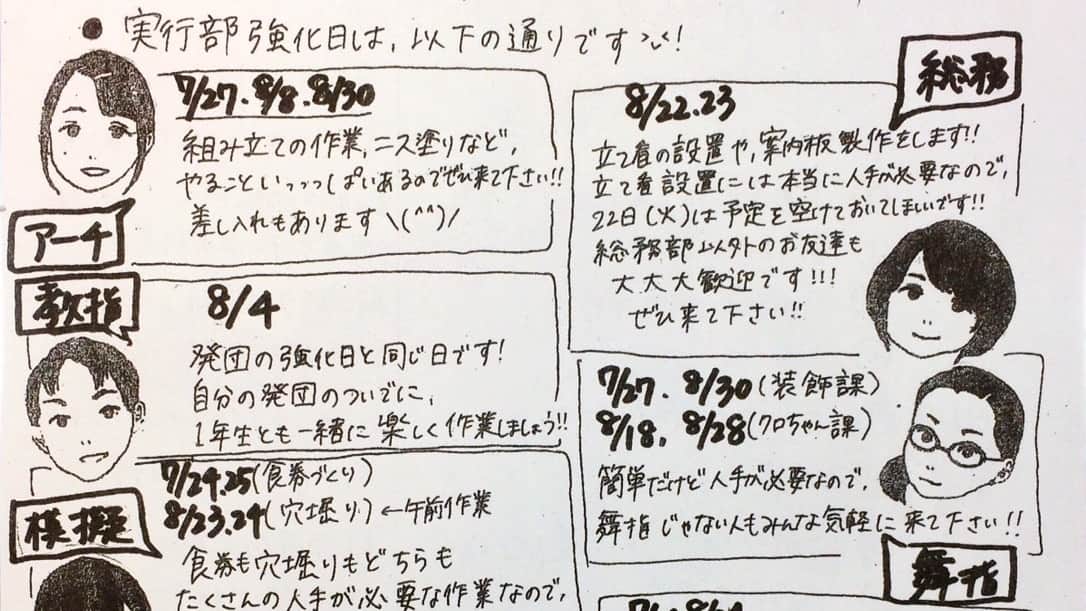 ● 実行部強化日は、以下の通りです！
7/27. 8/8. 8/30
組み立ての作業、ニス塗りなど、
やること いっっっぱいあるのでぜひ来て下さい!!
差し入れもあります \(^^)/
アーチ
教指
8/4
発団の強化日と同じ日です！
自分の発団のついでに、
1年生とも一緒に楽しく作業しましょう!!
模擬
7/24.25(食券づくり)
8/23.24(穴堀り)←午前作業
食券も穴堀りもどちらも
たくさんの人手が必要な作業なので、
総務
8/22.23
立て看の設置や、案内板製作をします!!
立て看設置には本当に人手が必要なので、
22日(火)は予定を空けておいてほしいです!!
総務部以外のお友達も
大大大歓迎です!!!
ぜひ来て下さい!!
7/27. 8/30(装飾課)
8/18. 8/28(クロちゃん課)
簡単だけど人手が必要なので、
舞指じゃない人もみんな気軽に来て下さい!!
舞指